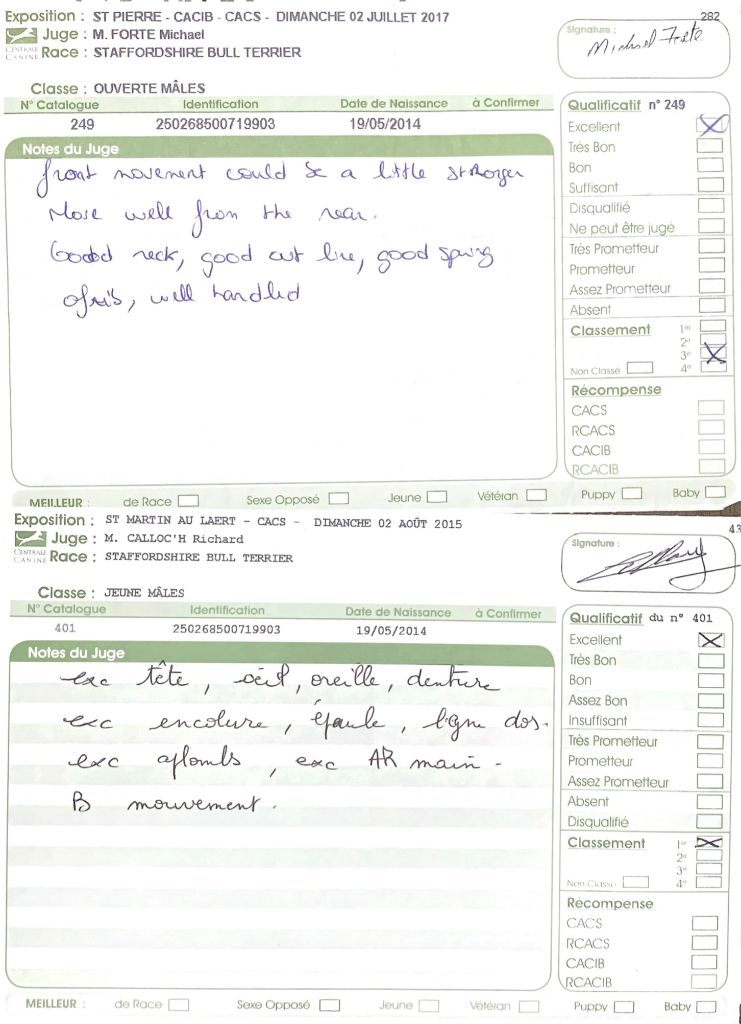 Exposition : ST PIERRE - CACIB - CACS - DIMANCHE 02 JUILLET 2017
282
CENTRALE CANINE
Juge : M. FORTE Michael
Race : STAFFORDSHIRE BULL TERRIER
Signature :
Michael Forte
Classe : OUVERTE MÂLES
N° Catalogue Identification Date de Naissance à Confirmer
249 250268500719903 19/05/2014
Notes du Juge
front movement could be a little stronger
Move well from the rear.
Good neck, good out line, good spring
of ribs, well handled
Qualificatif n° 249
Excellent
Très Bon
Bon
Suffisant
Disqualifié
Ne peut être jugé
Très Prometteur
Prometteur
Assez Prometteur
Absent
Classement 1er
2e
3e
Non Classé 4e
Récompense
CACS
RCACS
CACIB
RCACIB
MEILLEUR : de Race Sexe Opposé Jeune Vétéran Puppy Baby
Exposition : ST MARTIN AU LAERT - CACS - DIMANCHE 02 AOÛT 2015
43
CENTRALE CANINE
Juge : M. CALLOC'H Richard
Race : STAFFORDSHIRE BULL TERRIER
Signature :
Classe : JEUNE MÂLES
N° Catalogue Identification Date de Naissance à Confirmer
401 250268500719903 19/05/2014
Notes du Juge
exc tête, oeil, oreille, denture
exc encolure, épaule, ligne dos.
exc aplombs, exc AR main -
B mouvement.
Qualificatif du n° 401
Excellent
Très Bon
Bon
Assez Bon
Insuffisant
Très Prometteur
Prometteur
Assez Prometteur
Absent
Disqualifié
Classement 1er
2e
3e
Non Classé 4e
Récompense
CACS
RCACS
CACIB
RCACIB
MEILLEUR : de Race Sexe Opposé Jeune Vétéran Puppy Baby